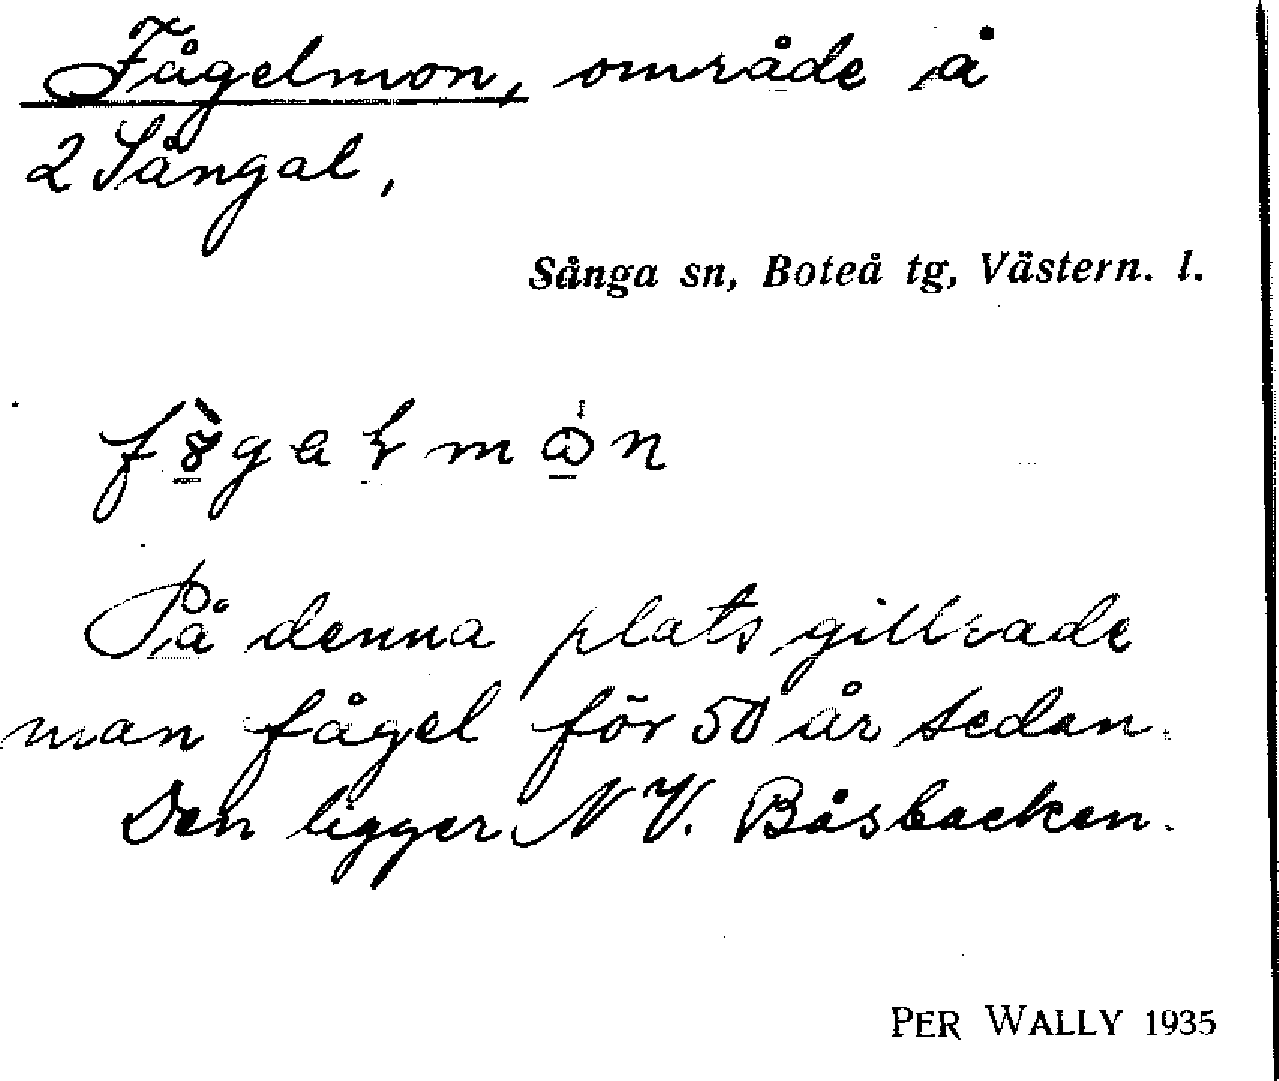 Fågelmon, område å
2 Sångal,
Sånga sn, Boteå tg, Västern. l.
På denna plats gillrade
man fågel för 50 år sedan.
Den ligger N V. Båsbacken.
PER WALLY 1935